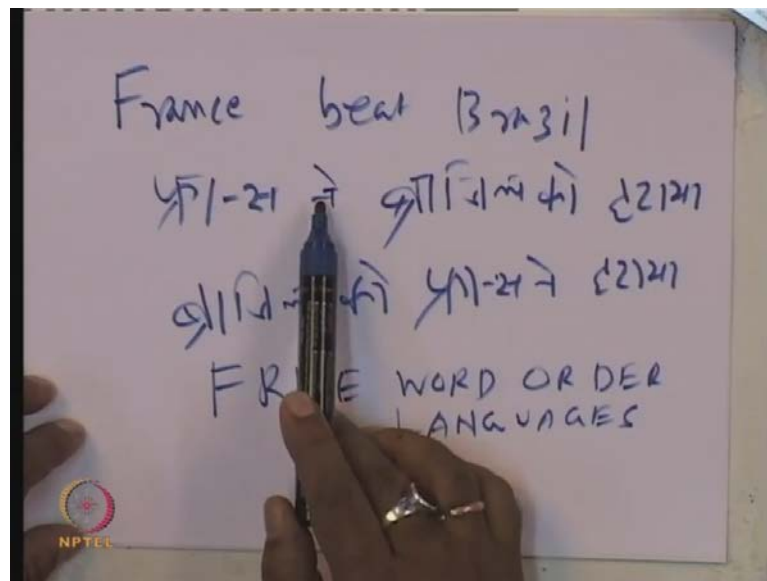 France beat Brazil
फ्रान्स ने ब्राजिल को हराया
ब्राजिल को फ्रान्स ने हराया
FREE WORD ORDER
LANGUAGES
NPTEL